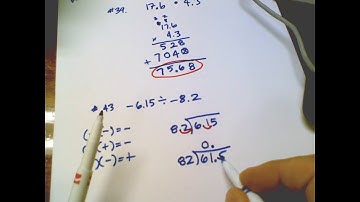 #39. 17.6 · 4.3
17.6
× 4.3
528
+ 7040
75.68
43 -6.15 ÷ -8.2
(-) = -
(+) = -
(-) = +
8.2)6.15
0.
82)61.5